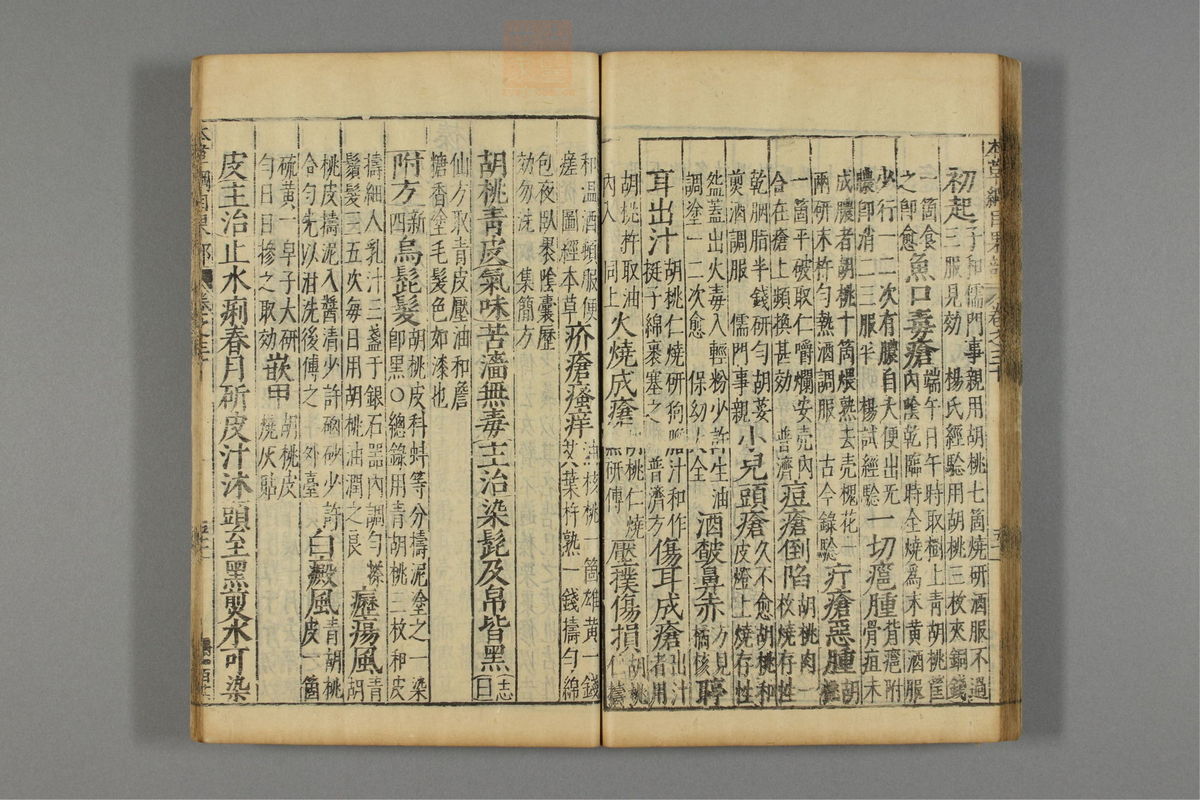 本草綱目果部 卷之三十
初起子和儒門事親用胡桃七箇燒研酒服不過三服見効 楊氏經驗用胡桃三枚夾銅錢
一箇食之即愈 魚口毒瘡端午日午時取樹上青胡桃筐內陰乾臨時全燒為末黃酒服
少行一二次有膿自大便出無膿即消二三服平 楊試經驗 一切癰腫背癰附骨疽未
成膿者胡桃十箇煨熟去壳槐花一兩研末杵勻熱酒調服 古今錄驗 疔瘡惡腫胡桃
一箇平破取仁嚼爛安壳內合在瘡上頻換甚効 普濟 痘瘡倒陷胡桃肉一枚燒存性
乾胭脂半錢研勻胡荽煎酒調服 儒門事親 小兒頭瘡久不愈胡桃和皮燈上燒存性
盌蓋出火毒入輕粉少許生油調塗一二次愈 保幼大全 酒皶鼻赤方見橘核 聤
耳出汁胡桃仁燒研狗膽汁和作挺子綿裹塞之 普濟方 傷耳成瘡出汁者用
胡桃杵取油內入 同上 火燒成瘡胡桃仁燒黑研傅 壓撲傷損胡桃仁擣
和溫酒頓服便瘥 圖經本草 疥瘡瘙痒油核桃一箇雄黃一錢艾葉杵熟一錢擣勻綿
包夜臥裹陰囊歷効勿洗 集簡方
胡桃青皮氣味苦濇無毒主治染髭及帛皆黑志曰
仙方取青皮壓油和詹糖香塗毛髮色如漆也
附方新四 烏髭髮胡桃皮科蚪等分擣泥塗之一染即黑〇總錄用青胡桃三枚和皮
擣細入乳汁三盞于銀石器內調勻搽鬚髮三五次每日用胡桃油潤之良 癧瘍風青胡
桃皮擣泥入醬清少許硇砂少許合勻先以泔洗後傅之 外臺 白癜風青胡桃皮一箇
硫黃一皁子大研勻日日摻之取効 嵌甲胡桃皮燒灰貼
皮主治止水痢春月斫皮汁沐頭至黑煎水可染